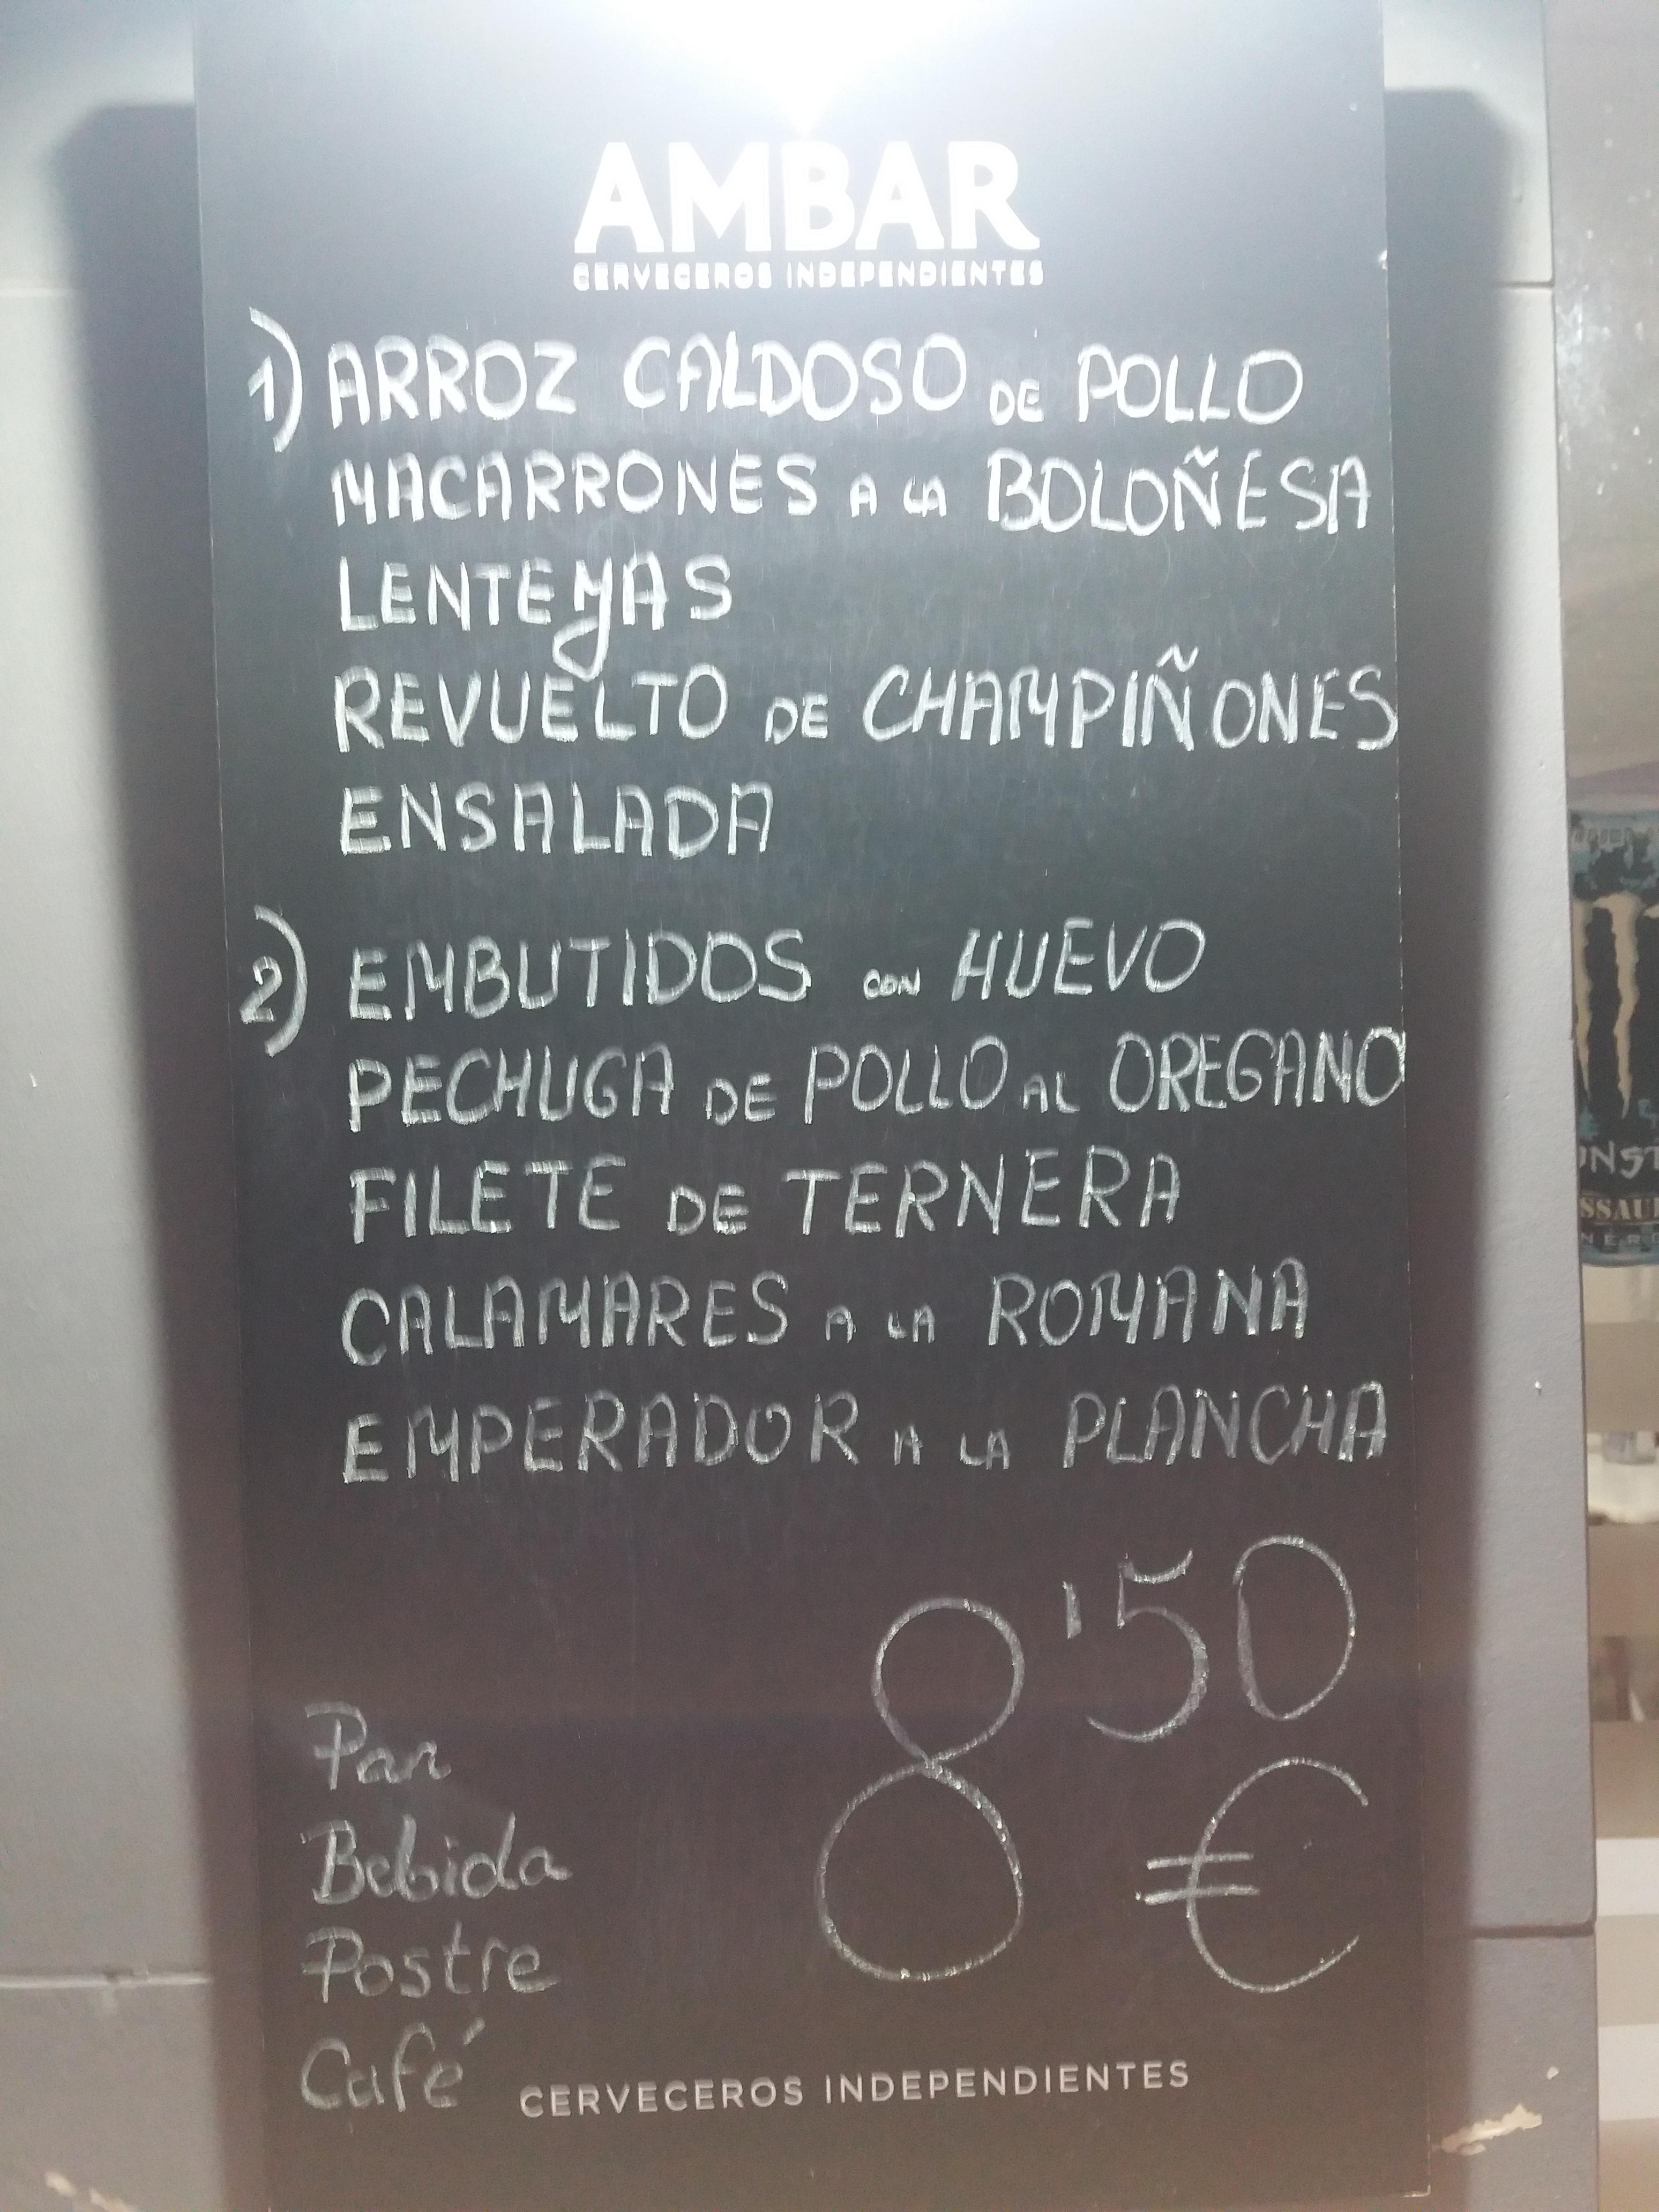 AMBAR
CERVECEROS INDEPENDIENTES
1) ARROZ CALDOSO DE POLLO
MACARRONES A LA BOLOÑESA
LENTEJAS
REVUELTO DE CHAMPIÑONES
ENSALADA
2) EMBUTIDOS CON HUEVO
PECHUGA DE POLLO AL OREGANO
FILETE DE TERNERA
CALAMARES A LA ROMANA
EMPERADOR A LA PLANCHA
8'50
€
Pan
Bebida
Postre
Café
CERVECEROS INDEPENDIENTES